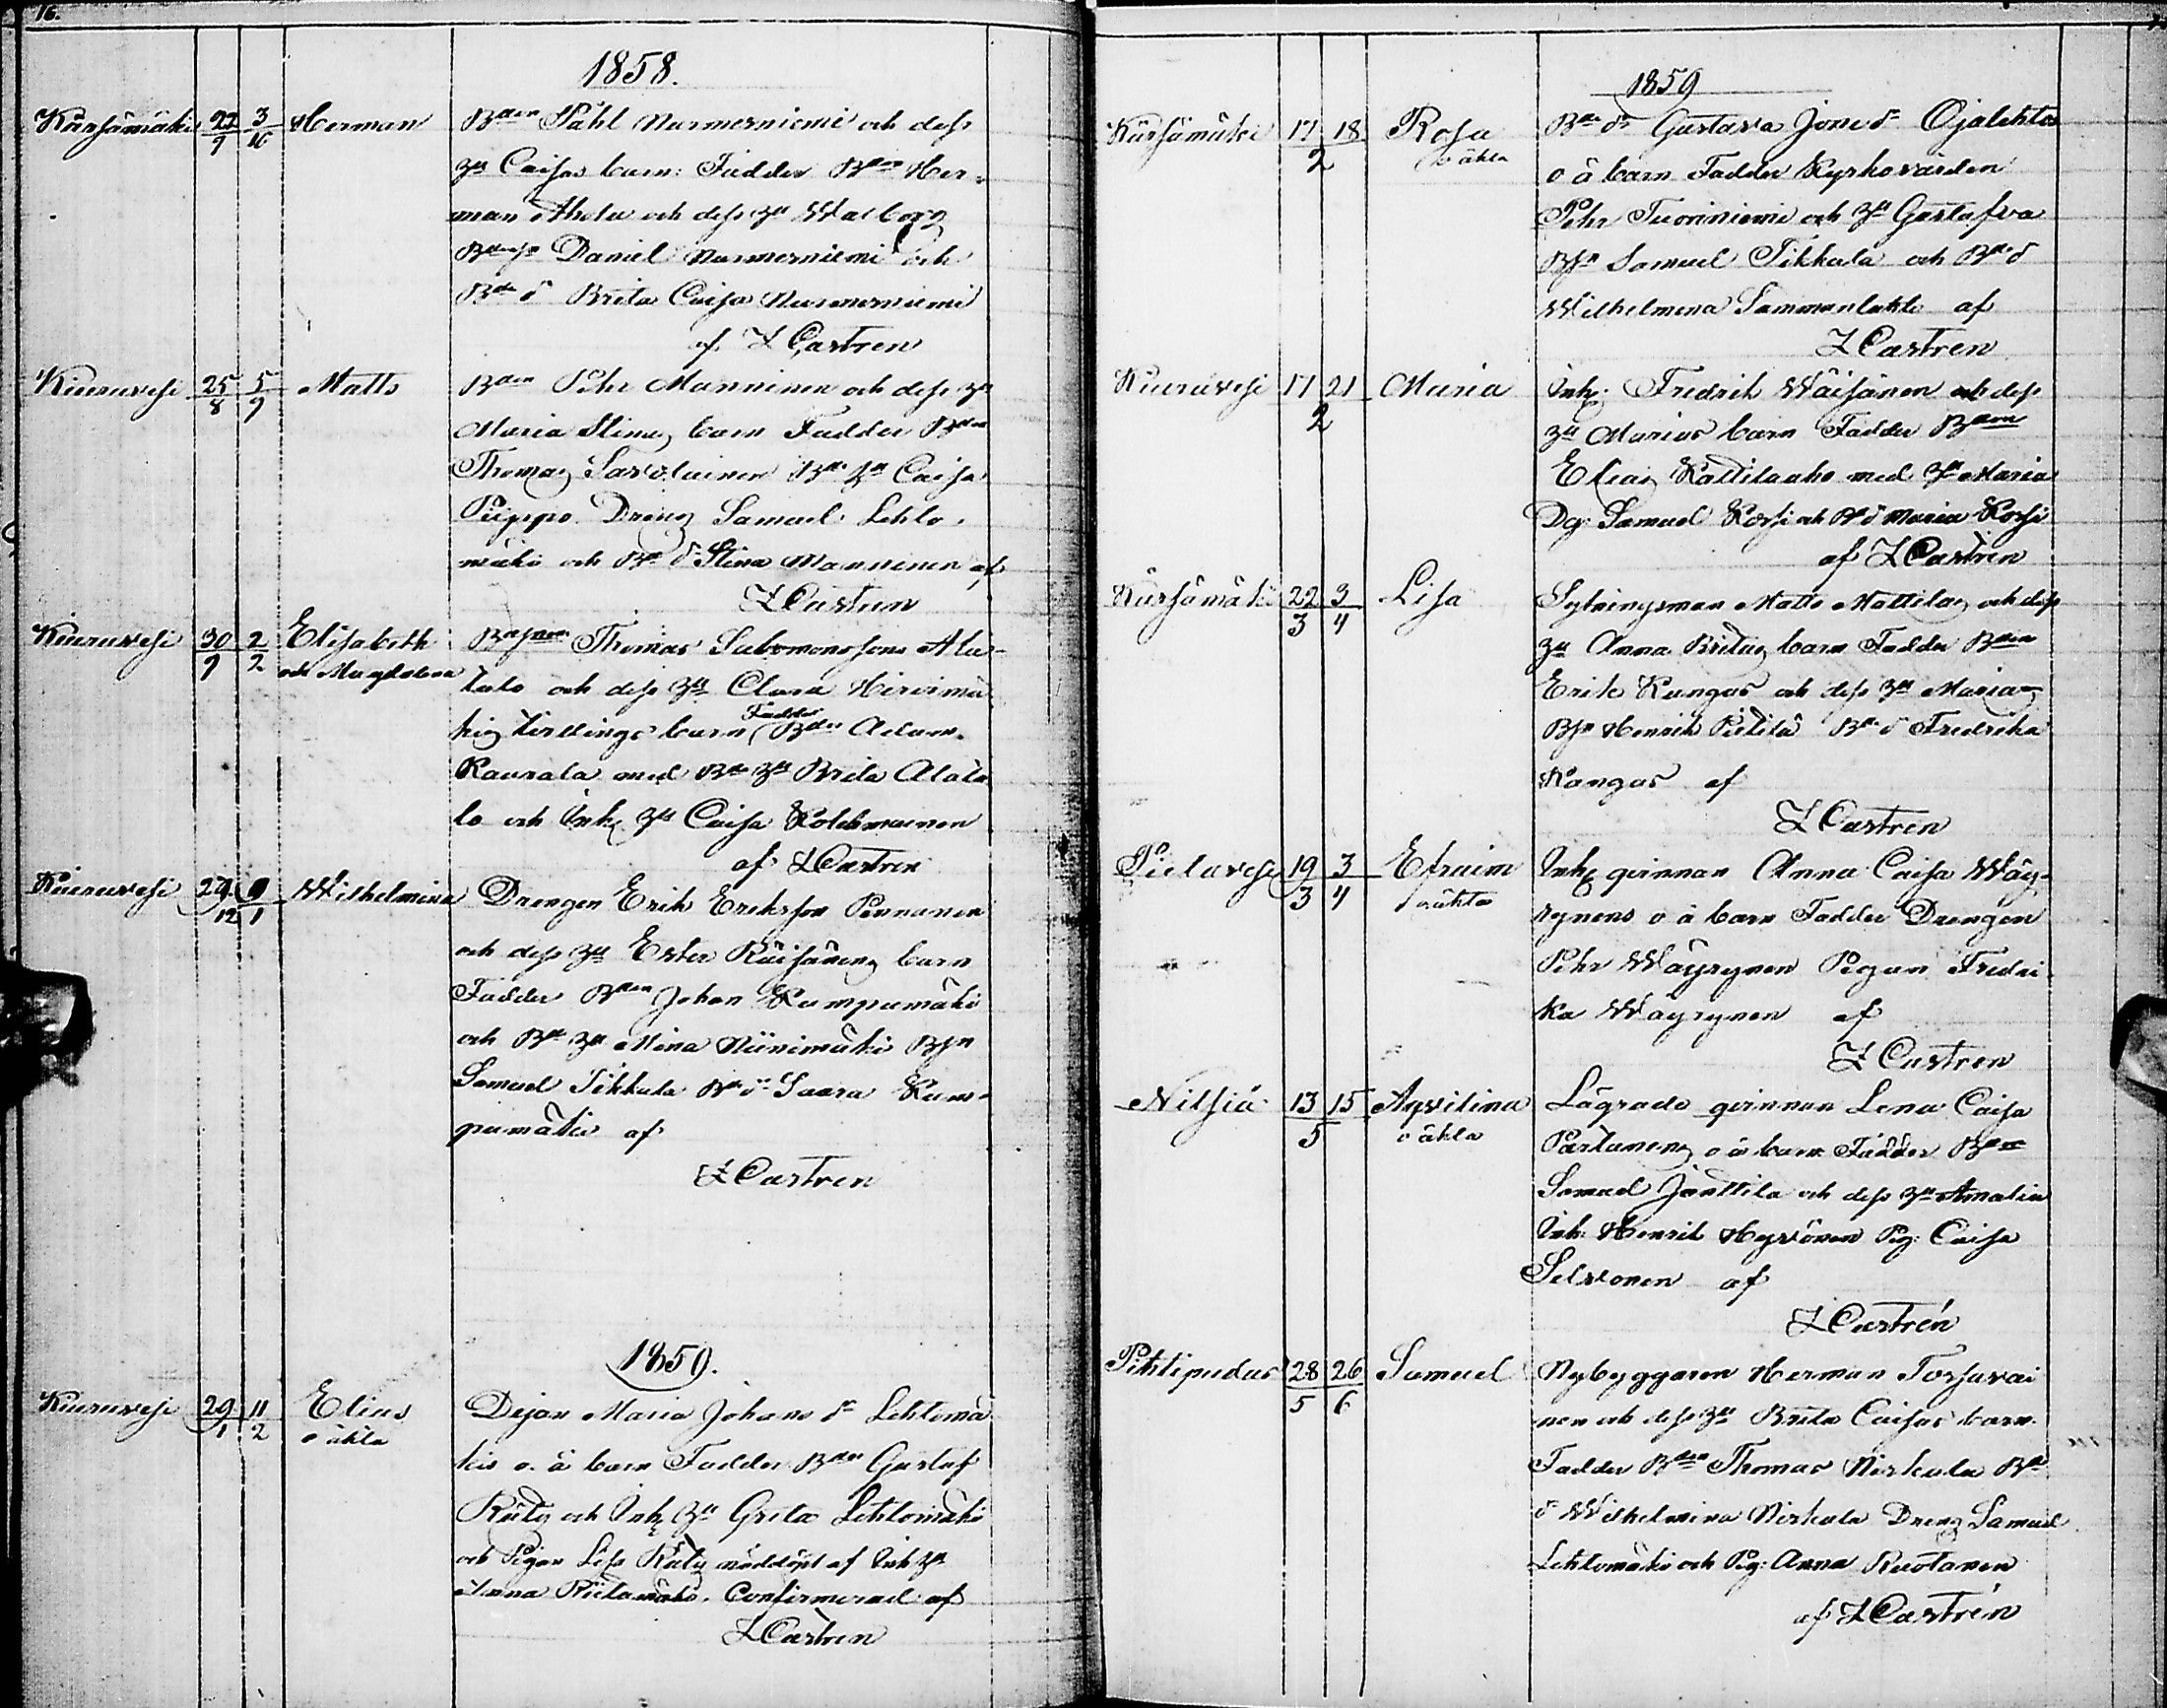 16.
1858.
Kärsämäki 22/9 3/10 Herman Bden Påhl Nurmesniemi och dess
hu Caisas barn: Fadder Bden Her-
man Ahola och dess hu Walborg
Daniel Nurmesniemi och
Bde dr Brita Caisa Nurmesniemi
af Z Castren
Kiuruvesi 25/8 5/9 Matts Bden Pehr Manninen och dess hu
Maria Stinas barn Fadder Bden
Thomas Savolainen Bde hu Caisa
Piippo Dreng Samuel Lehto-
mäki och Bde dr Stina Manninen af
Z Castren
Kiuruvesi 30/9 2/2 Elisabeth Thomas Salomonsson Ala-
och Magdalena talo och dess hu Clara Hirvimä-
kis tvillings barn Fadder Bden Adam
Kaurala med Bde hu Brita Alata-
lo och Inh hu Caisa Kolehmainen
af Z Castren
Kiuruvesi 29/12 1 Wilhelmina Drengen Erik Eriksson Pennanen
och dess hu Ester Räisänens barn
Fadder Bden Johan Kumpumäki
och Bde hu Mina Niinimäki Bsn
Samuel Tikkala Bde dr Saara Kum-
pumäki af
Z Castren
1859.
Kiuruvesi 29/1 11/2 Elias Pigan Maria Johans dr Lehtomä-
o äkta kis o. ä barn Fadder Bden Gustaf
Räty och Inh hu Greta Lehtomäki
och Pigan Lisa Räty nöddöpt af Inh hu
Anna Confirmerad af
Z Castren
1859
Kärsämäki 17 18/2 Rosa Bde dr Gustava Jons dr Ojalehto
o äkta o ä barn Fadder Kyrkovärden
Pehr Tuoriniemi och hu Gustafva
Bsn Samuel Tikkala och Bde d
Wilhelmina Sammanlahti af
Z Castren
Kiuruvesi 17 21/2 Maria Inh: Fredrik Wäisänen och dess
hu Marias barn Fadder Bden
Elias Kattilaaho med hu Maria
Dg: Samuel Kossi och Bde d Maria Kossi
af Z Castren
Kärsämäki 22/3 3/4 Lisa Sytningsman Matts Mattilas och dess
hu Anna Britas barn Fadder Bden
Erik Kangas och dess hu Maria
Bsn Henrik Pietilä Bde d Fredrika
Kangas af
Z Castren
Pielavesi 19/3 3/4 Efraim Inh qvinnan Anna Caisa Wäy-
o äkta rynens o ä barn Fadder Drengen
Pehr Wäyrynen Pigan Fredri-
ka Wäyrynen af
Z Castren
Nilsiä 13 15/5 Aqvilina Lägrade qvinnan Lena Caisa
o äkta Partanens o ä barn Fadder Bden
Samuel Jänttilä och dess hu Amalia
Inh: Henrik Hyvönen Pig: Caisa
Selvonen af
Z Castrén
Pihtipudas 28/5 26/6 Samuel Nybyggaren Herman Torsavai-
nen och dess hu Brita Caisas barn
Fadder Bden Thomas Niskala Bde
d Wilhelmina Niskala Dreng Samuel
Lehtomäki och Pig: Anna Ruotanen
af Z Castrén